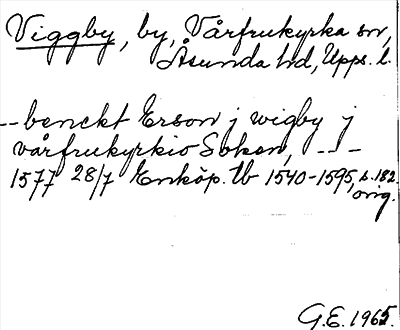 Viggby, by, Vårfrukyrka sn,
Åsunda hd, Upps. l.
-- benckt Erson j wigby j
vårfrukyrkio Soken, -- --
1577 28/7 Enköp. tb 1540-1595, s. 182.
orig.
G.E. 1965.